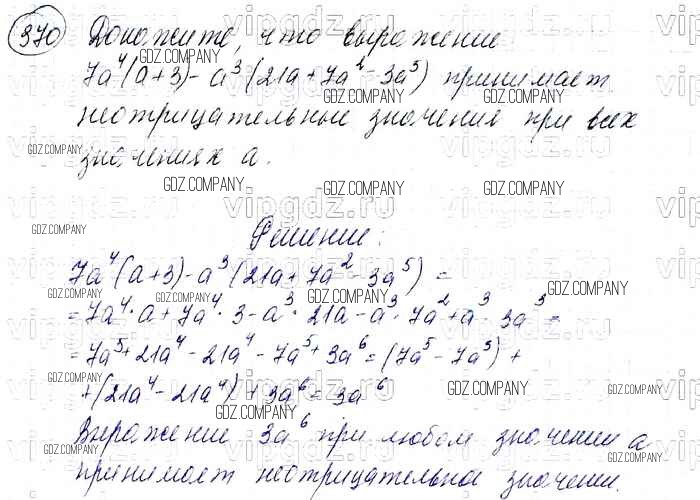 370 Докажите, что выражение
7a⁴(a+3)-a³(21a+7a²-3a⁵) принимает
неотрицательные значения при всех
значениях a.
Решение:
7a⁴(a+3)-a³(21a+7a²-3a⁵)=
=7a⁴·a+7a⁴·3-a³·21a-a³·7a²+a³·3a³=
=7a⁵+21a⁴-21a⁴-7a⁵+3a⁶=(7a⁵-7a⁵)+
+(21a⁴-21a⁴)+3a⁶=3a⁶
Выражение 3a⁶ при любом значении a
принимает неотрицательное значение.
GDZ.COMPANY
vipgdz.ru